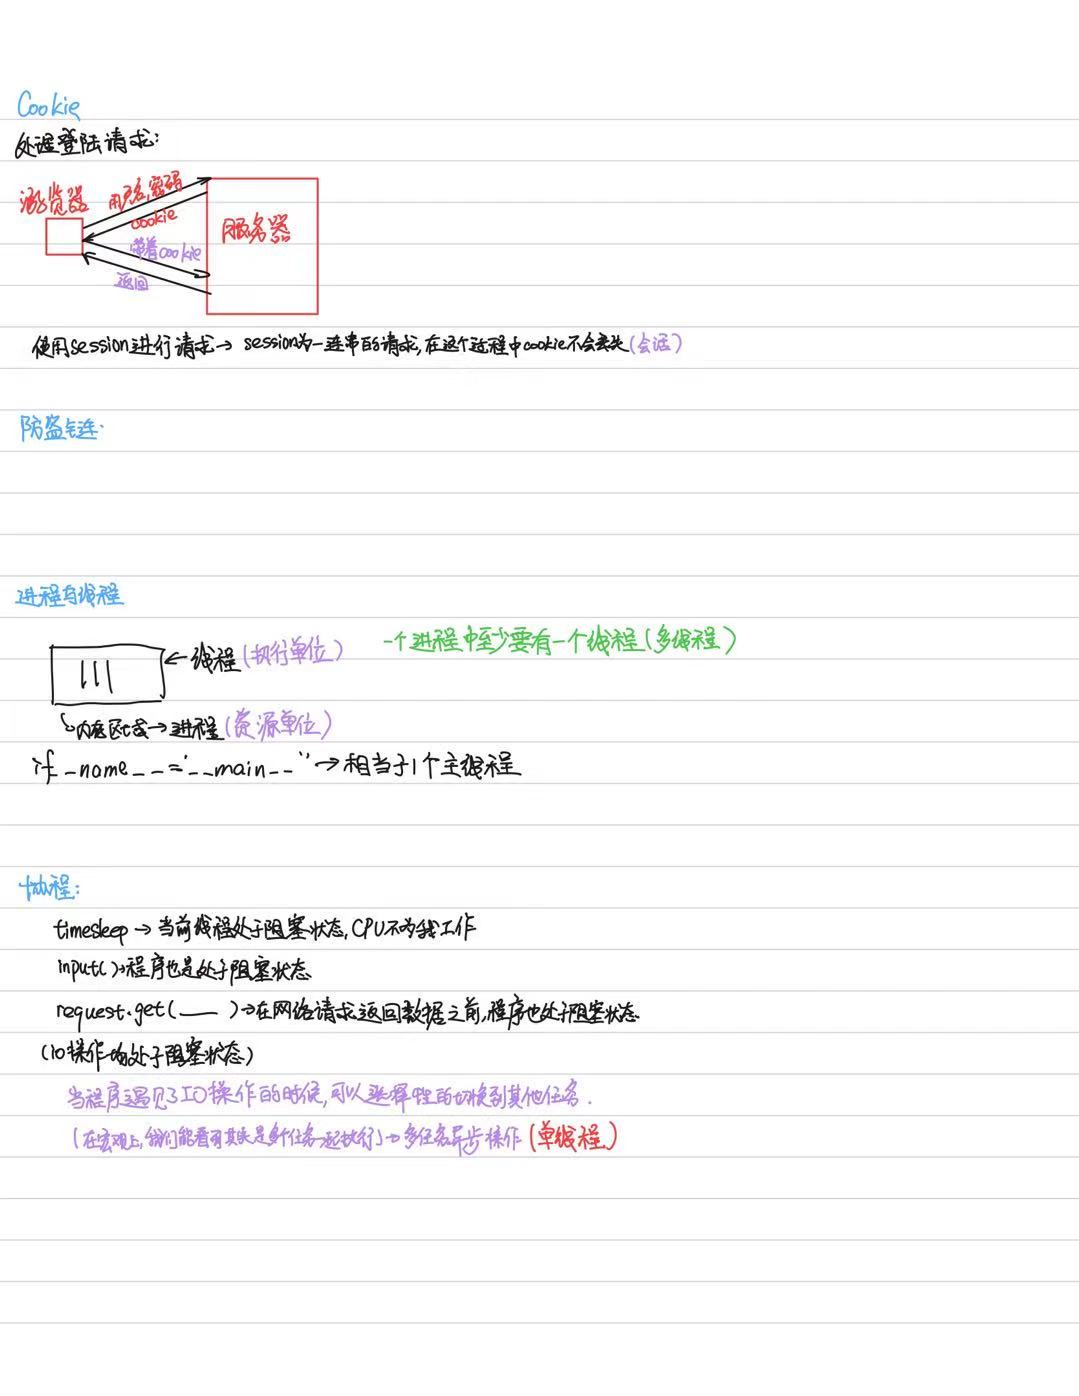 Cookie
处理登陆请求:
浏览器
用户名,密码
cookie
服务器
带着cookie
返回
使用session进行请求→ session为一连串的请求,在这个过程中cookie不会丢失(会话)
防盗链·
进程与线程
一个进程中至少要有一个线程(多线程)
←线程(执行单位)
内存区域→进程(资源单位)
if _name__='__main__"→相当于1个主线程
协程:
timesleep→当前线程处于阻塞状态,CPU不为我工作
input()→程序也是处于阻塞状态
request.get(___)→在网络请求返回数据之前,程序也处于阻塞状态.
(io操作均处于阻塞状态)
当程序遇见了IO操作的时候,可以选择性的切换到其他任务.
(在宏观上,我们能看到其实是多个任务一起执行)→多任务异步操作(单线程)